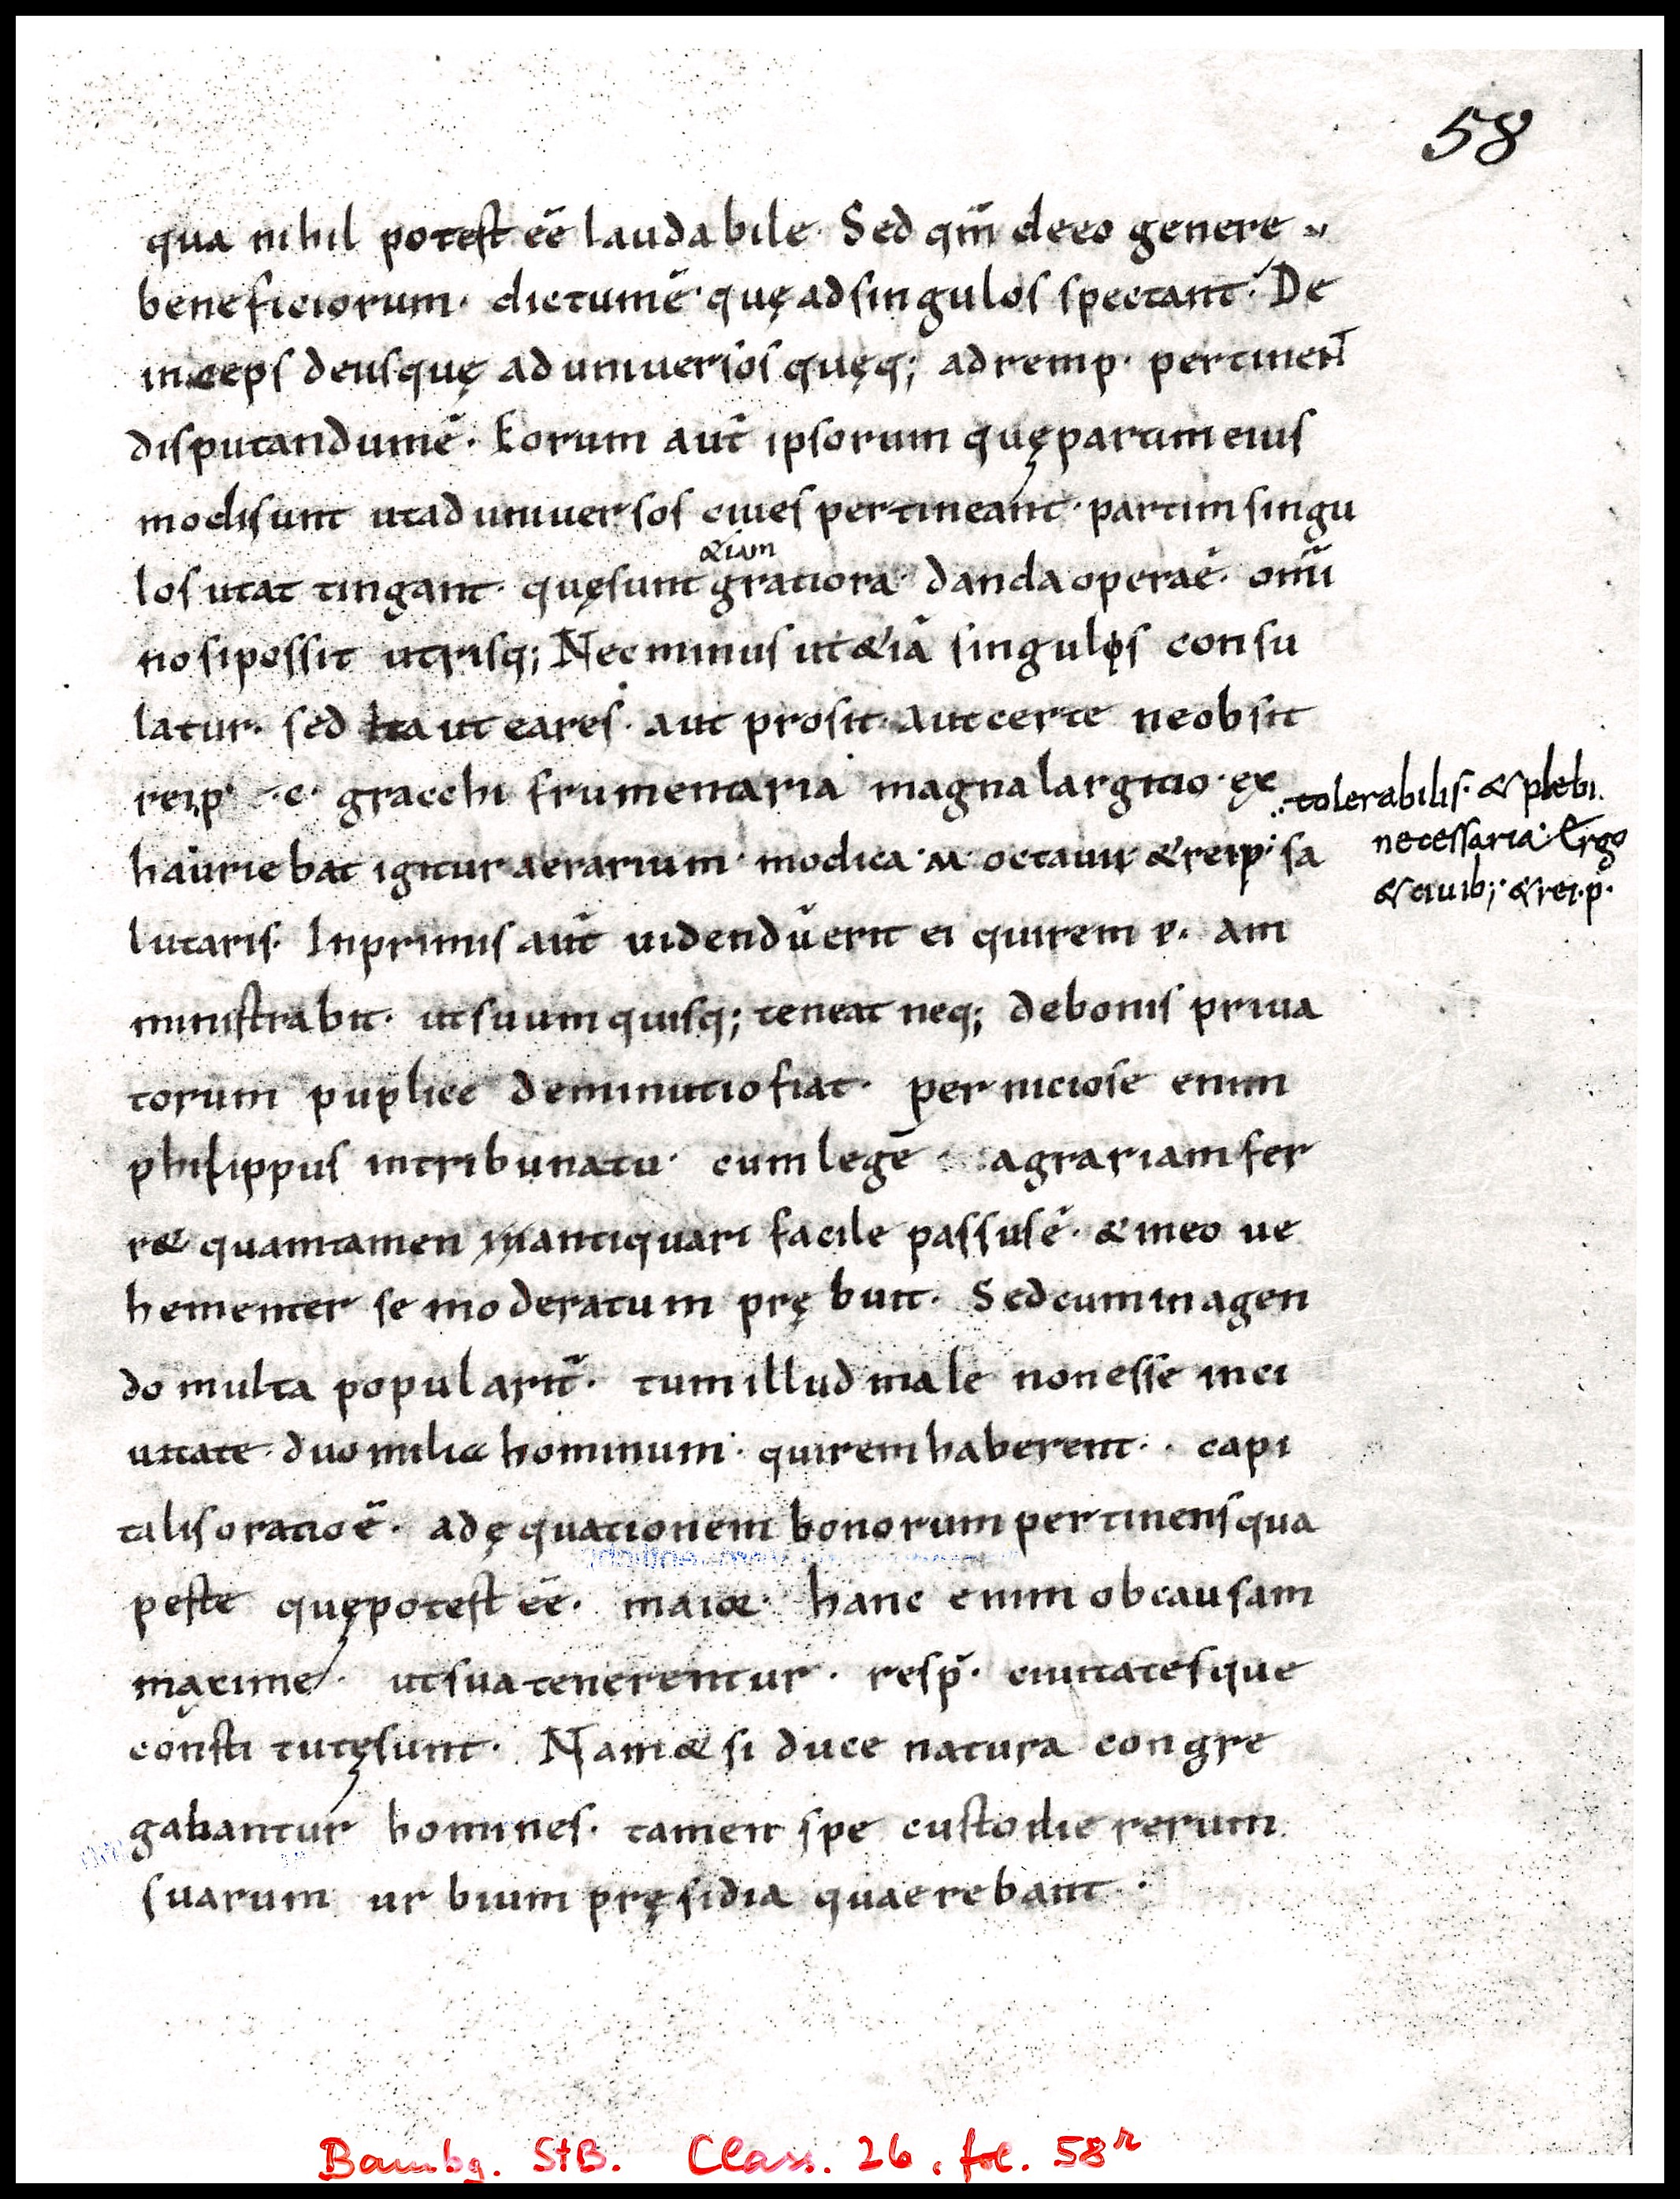 58
qua nihil potest eē laudabile· Sed qm̄ deeo genere
beneficiorum· dictumē· quę adsingulos spectant· De
inceps deusquę ad uniuersos quęq; ad remp· pertinent
disputandumē· Eorum aut̄ ipsorum quępartim eius
modisunt utad uniuersos ciues pertineant· partim singu
los utat tingant· quęsunt &iam gratiora· danda operaē· omī
no sipossit utrisq; Nec minus ut &iā singulos consu
latur· sed ita ut eares· aut prosit· autcerte neobsit
reip· c· gracchi frumentaria magna largitio· ex
hauriebat igitur aerarium· modica· M· octauii· & reip· sa
tolerabilis· & plebi·
necessaria· Ergo
& ciuib;· & rei·p·
lutaris· Inprimis aut̄ uidendū erit ei quirem p· am
ministrabit· utsuum quisq; teneat neq; debonis priua
torum puplice deminutiofiat· perniciose enim
philippus intribunatu· cumlegē agrariamfer
r& quamtamen antiquari facile passusē· & ineo ue
hementer se moderatum prę buit· Sedcuminagen
do multa populariť· tum illud male nonesse inci
uitate· duo milia hominum· quirem haberent· capi
talisoratioē· adęquationem bonorum pertinens qua
peste quępotest eē· maior· hanc enim obcausam
maxime· utsuatenerentur· resp̄· ciuitatesque
consti tutęsunt· Nam & si duce natura congre
gabantur homines· tamen spe custodie rerum
suarum ur bium pręsidia quaerebant·
Bambg. StB. Class. 26, fol. 58r